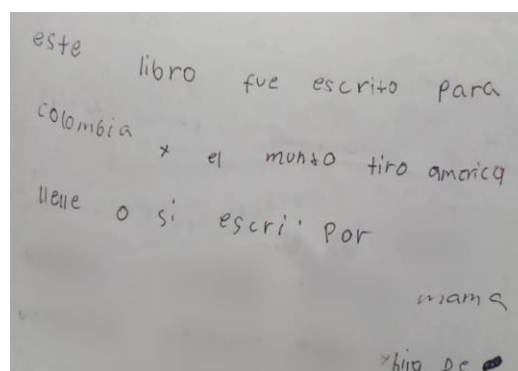 este libro fue escrito para
colombia x el munto tiro america
lleue o si escri. por
mama
x hija De